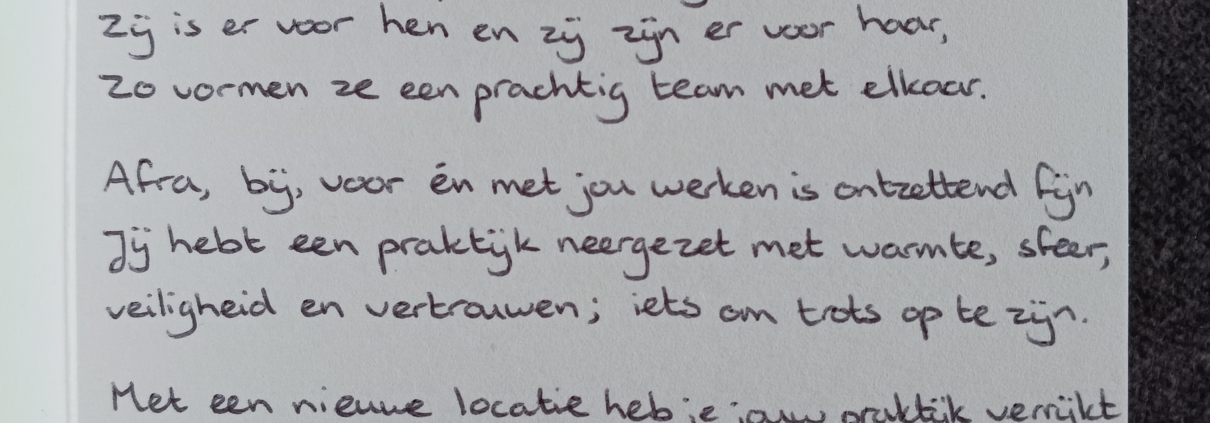 Zij is er voor hen en zij zijn er voor haar,
Zo vormen ze een prachtig team met elkaar.
Afra, bij, voor én met jou werken is ontzettend fijn
Jij hebt een praktijk neergezet met warmte, sfeer,
veiligheid en vertrouwen; iets om trots op te zijn.
Met een nieuwe locatie heb je jouw praktijk verrijkt